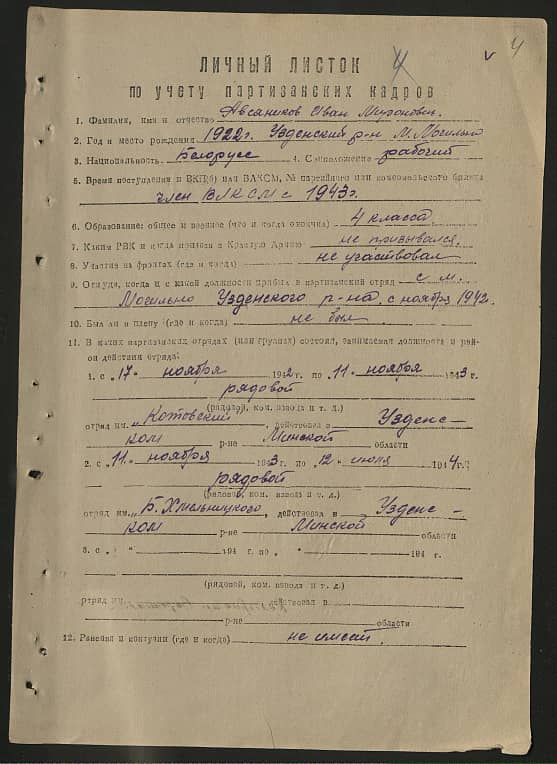 4 v 4
ЛИЧНЫЙ ЛИСТОК
по учету партизанских кадров
1. Фамилия, имя и отчество Авсяников Иван Миронович
2. Год и место рождения 1922г. Узденский р-н М. Могильно
3. Национальность Белорусс 4. Соцположение рабочий
5. Время поступления в ВКП(б) или ВЛКСМ, № партийного или комсомольского билета
член ВЛКСМ с 1943г.
6. Образование: общее и военное (что и когда окончил) 4 класса
7. Каким РВК и когда призван в Красную Армию не призывался.
8. Участие на фронтах (где и когда) не участвовал
9. Откуда, когда и с какой должности прибыл в партизанский отряд с м.
Могильно Узденского р-на, с ноября 1942г.
10. Был ли в плену (где и когда) не был
11. В каких партизанских отрядах (или группах) состоял, занимаемая должность и рай-
он действия отряда:
1. с „17" ноября 1942 г. по „11" ноября 1943 г.
рядовой
(рядовой, ком. взвода и т. д.)
отряд им. „Котовский", действовал в Узденс-
ком р-не Минской области
2. с „11" ноября 1943 г. по „12" июля 1944 г.
рядовой
(рядовой, ком. взвода и т. д.)
отряд им. „Б. Хмельницкого, действовал в Узденс-
ком р-не Минской области
3. с „ " 194 г. по „ " 194 г.
(рядовой, ком. взвода и т. д.)
отряд им. действовал в
р-не области
12. Ранения и контузии (где и когда) не имеет.